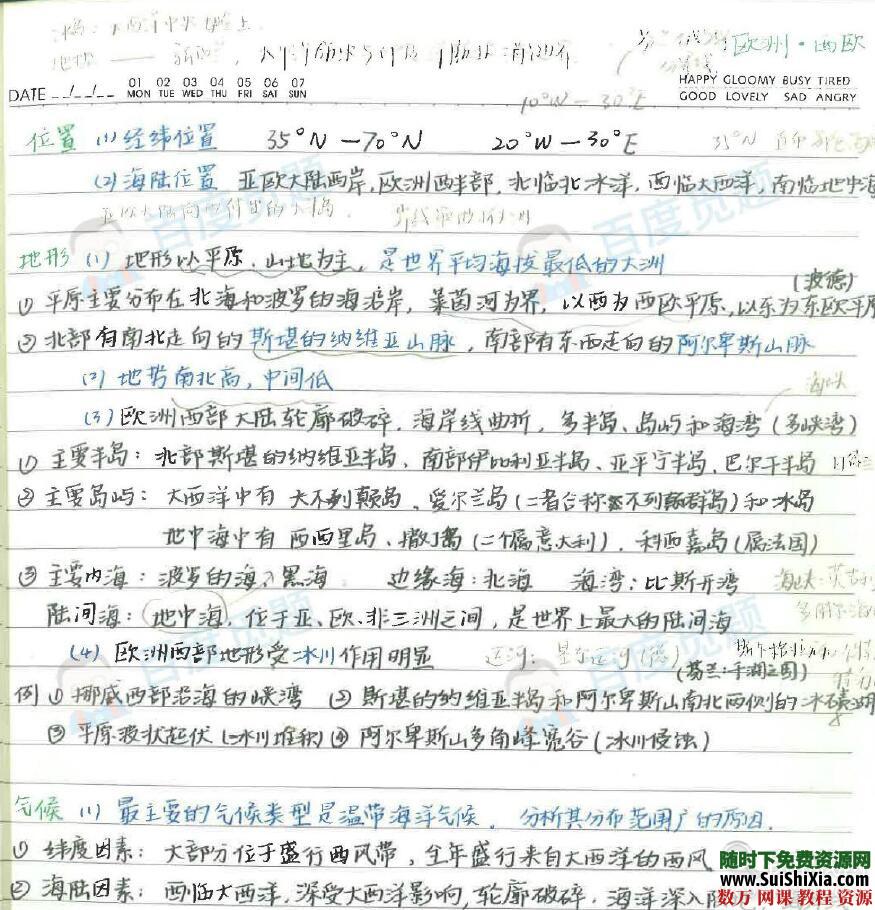 冰岛：大西洋中央
欧洲·西欧
DATE _/_/_ 01 MON 02 TUE 03 WED 04 THU 05 FRI 06 SAT 07 SUN
HAPPY GLOOMY BUSY TIRED
GOOD LOVELY SAD ANGRY
10°W — 30°E
位置 (1) 经纬位置 35°N — 70°N 20°W — 30°E 35°N
(2) 海陆位置 亚欧大陆西岸,欧洲西半部,北临北冰洋,西临大西洋,南临地中海
亚欧大陆向西伸出的大
地形 (1) 地形以平原、山地为主,是世界平均海拔最低的大洲
(波德)
① 平原主要分布在北海和波罗的海沿岸,莱茵河为界,以西为西欧平原,以东为东欧平原
② 北部有南北走向的斯堪的纳维亚山脉,南部有东西走向的阿尔卑斯山脉
(2) 地势南北高,中间低
海峡
(3) 欧洲西部大陆轮廓破碎,海岸线曲折,多半岛、岛屿和海湾(多峡湾)
① 主要半岛:北部斯堪的纳维亚半岛、南部伊比利亚半岛、亚平宁半岛、巴尔干半岛
② 主要岛屿:大西洋中有 大不列颠岛、爱尔兰岛(二者合称不列颠群岛)和冰岛
地中海中有 西西里岛、撒丁岛(二个属意大利)、科西嘉岛(属法国)
③ 主要内海:波罗的海、黑海 边缘海:北海 海湾:比斯开湾 海峡:英吉利
陆间海:地中海,位于亚、欧、非三洲之间,是世界上最大的陆间海
(4) 欧洲西部地形受冰川作用明显 运河:基尔运河(德)
(芬兰:千湖之国)
例 ① 挪威西部沿海的峡湾 ② 斯堪的纳维亚半岛和阿尔卑斯山南北两侧的冰碛湖
③ 平原波状起伏(冰川堆积) ④ 阿尔卑斯山多角峰宽谷(冰川侵蚀)
气候 (1) 最主要的气候类型是温带海洋气候。分析其分布范围广的原因.
① 纬度因素:大部分位于盛行西风带,全年盛行来自大西洋的西风
② 海陆因素:西临大西洋,深受大西洋影响,轮廓破碎,海洋深入
百度觅题
百度觅题
百度觅题
百度觅题
随时下免费资源网
www.SuiShiXia.com
数万 网课 教程 资源